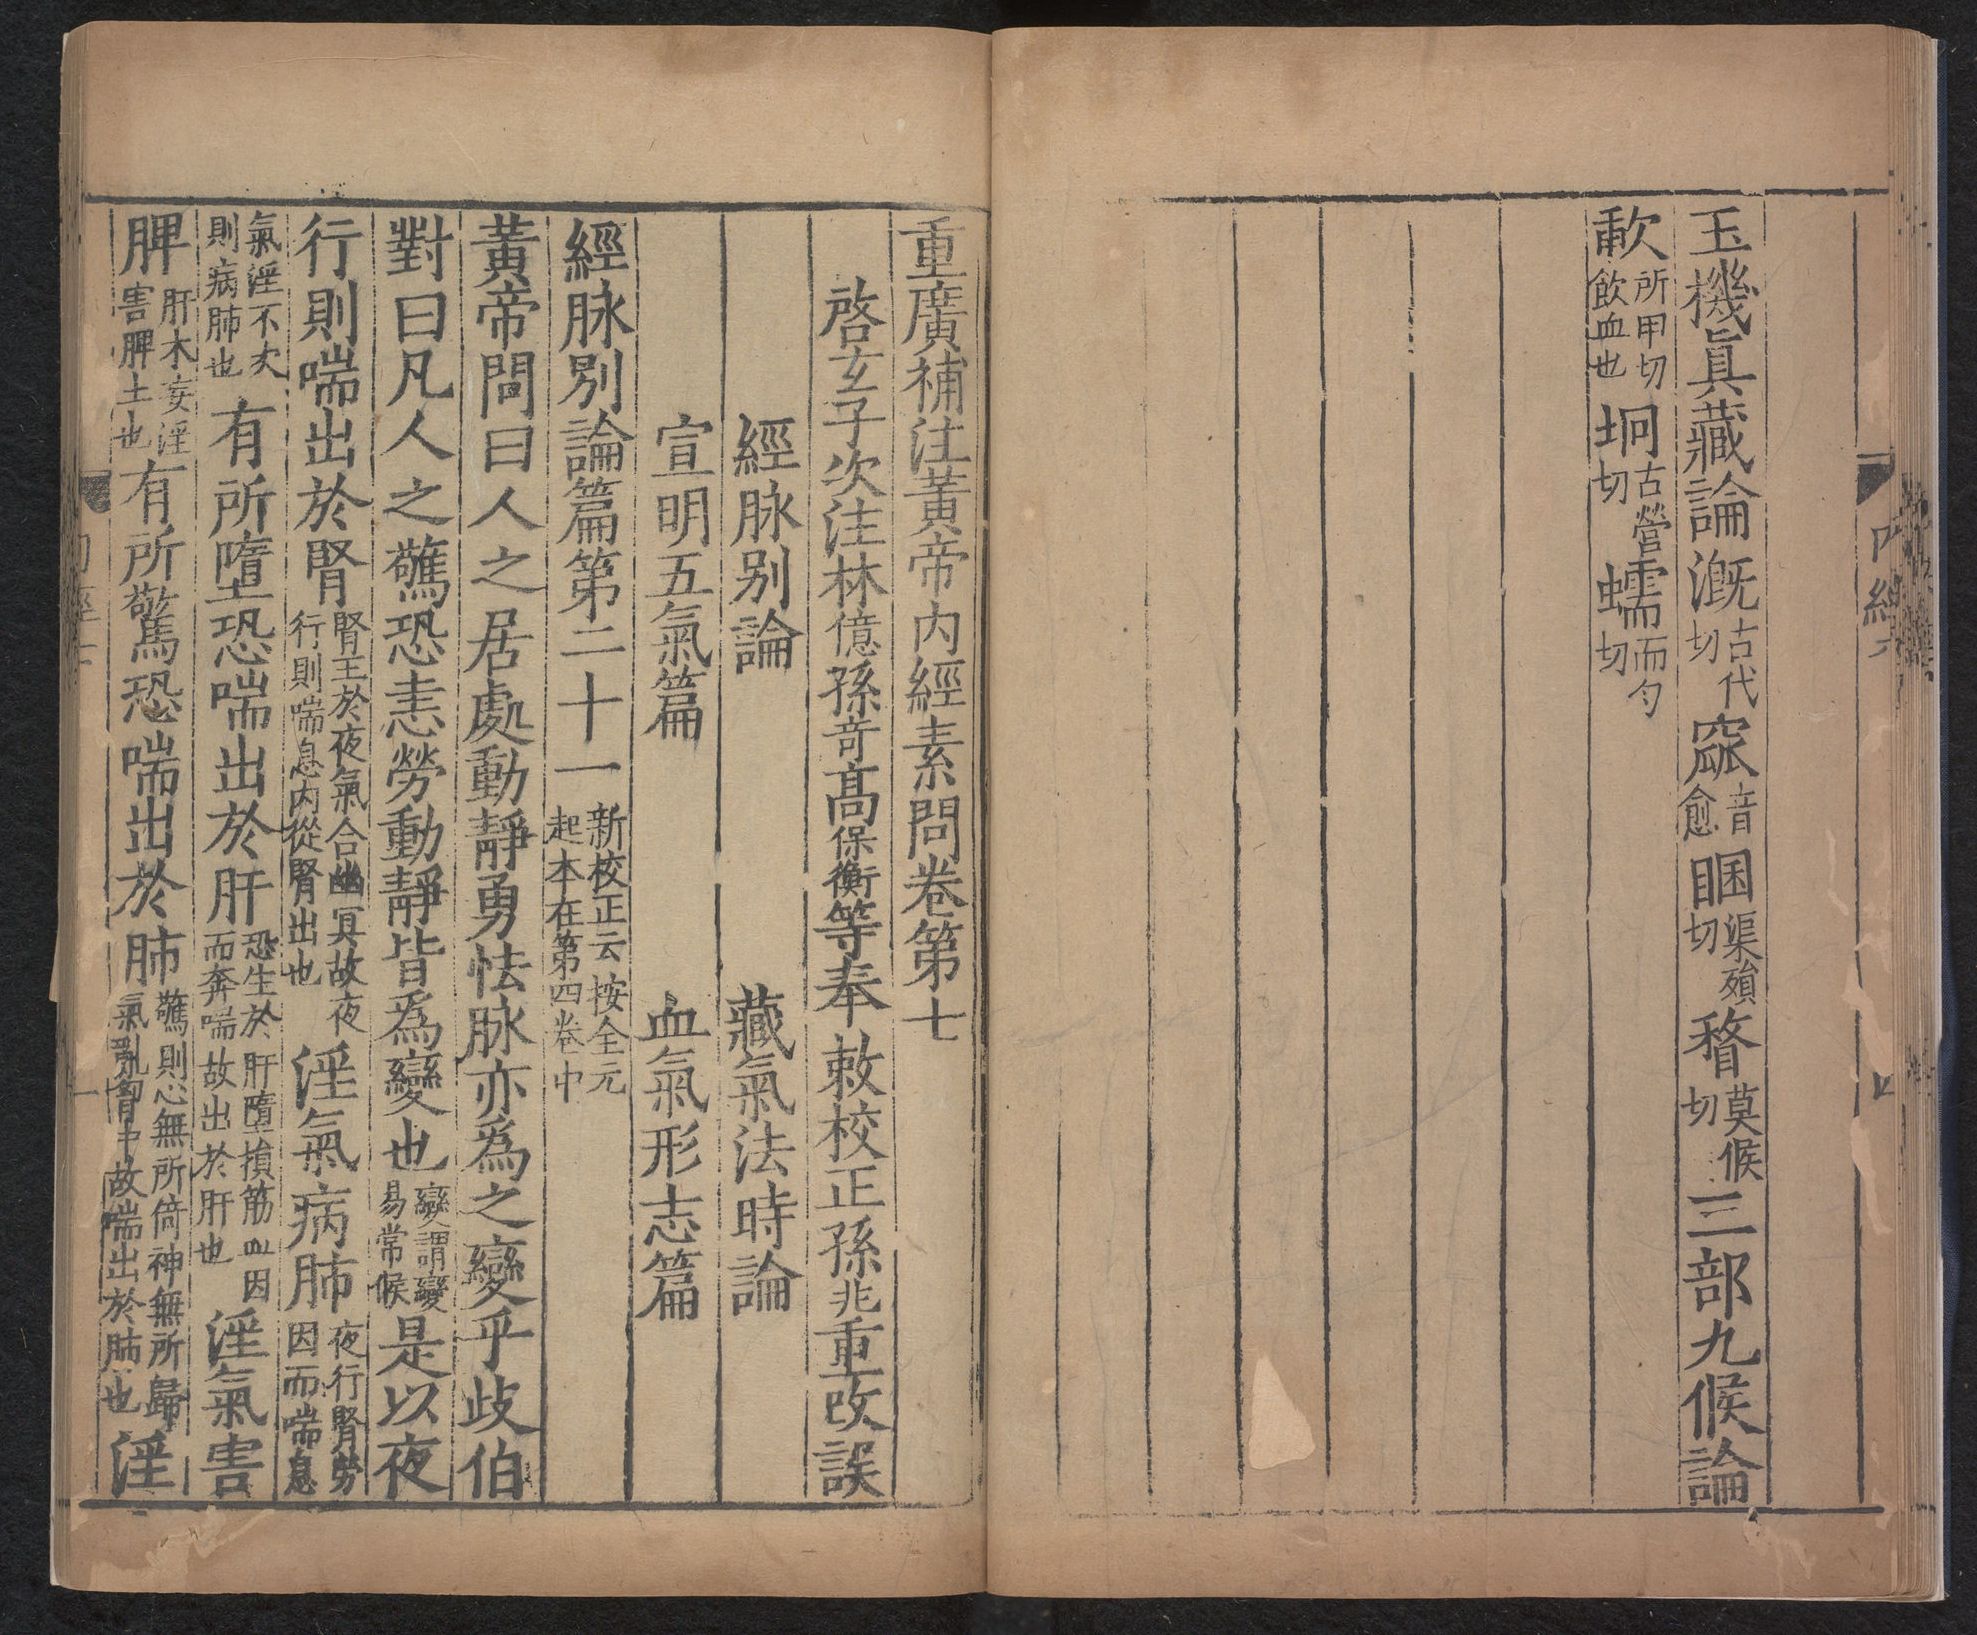 玉機眞藏論溉古代切窳音愈䐃渠殞切瞀莫候切三部九候論
㰱所甲切飲血也坰古營切蠕而勺切
重廣補注黃帝內經素問卷第七
啓玄子次注林億孫竒高保衡等奉敕校正孫兆重改誤
經脉别論　藏氣法時論
宣明五氣篇　血氣形志篇
經脉别論篇第二十一新校正云按全元起本在第四卷中
黃帝問曰人之居處動靜勇怯脉亦爲之變乎歧伯
對曰凡人之驚恐恚勞動靜皆爲變也變謂變易常候是以夜
行則喘出於腎腎王於夜氣合幽冥故夜行則喘息内從腎出也淫氣病肺夜行腎勞因而喘息
氣淫不次則病肺也有所墮恐喘出於肝恐生於肝墮損筋血因而奔喘故出於肝也淫氣害
脾肝木妄淫害脾土也有所驚恐喘出於肺驚則心無所倚神無所歸氣亂胷中故喘出於肺也淫